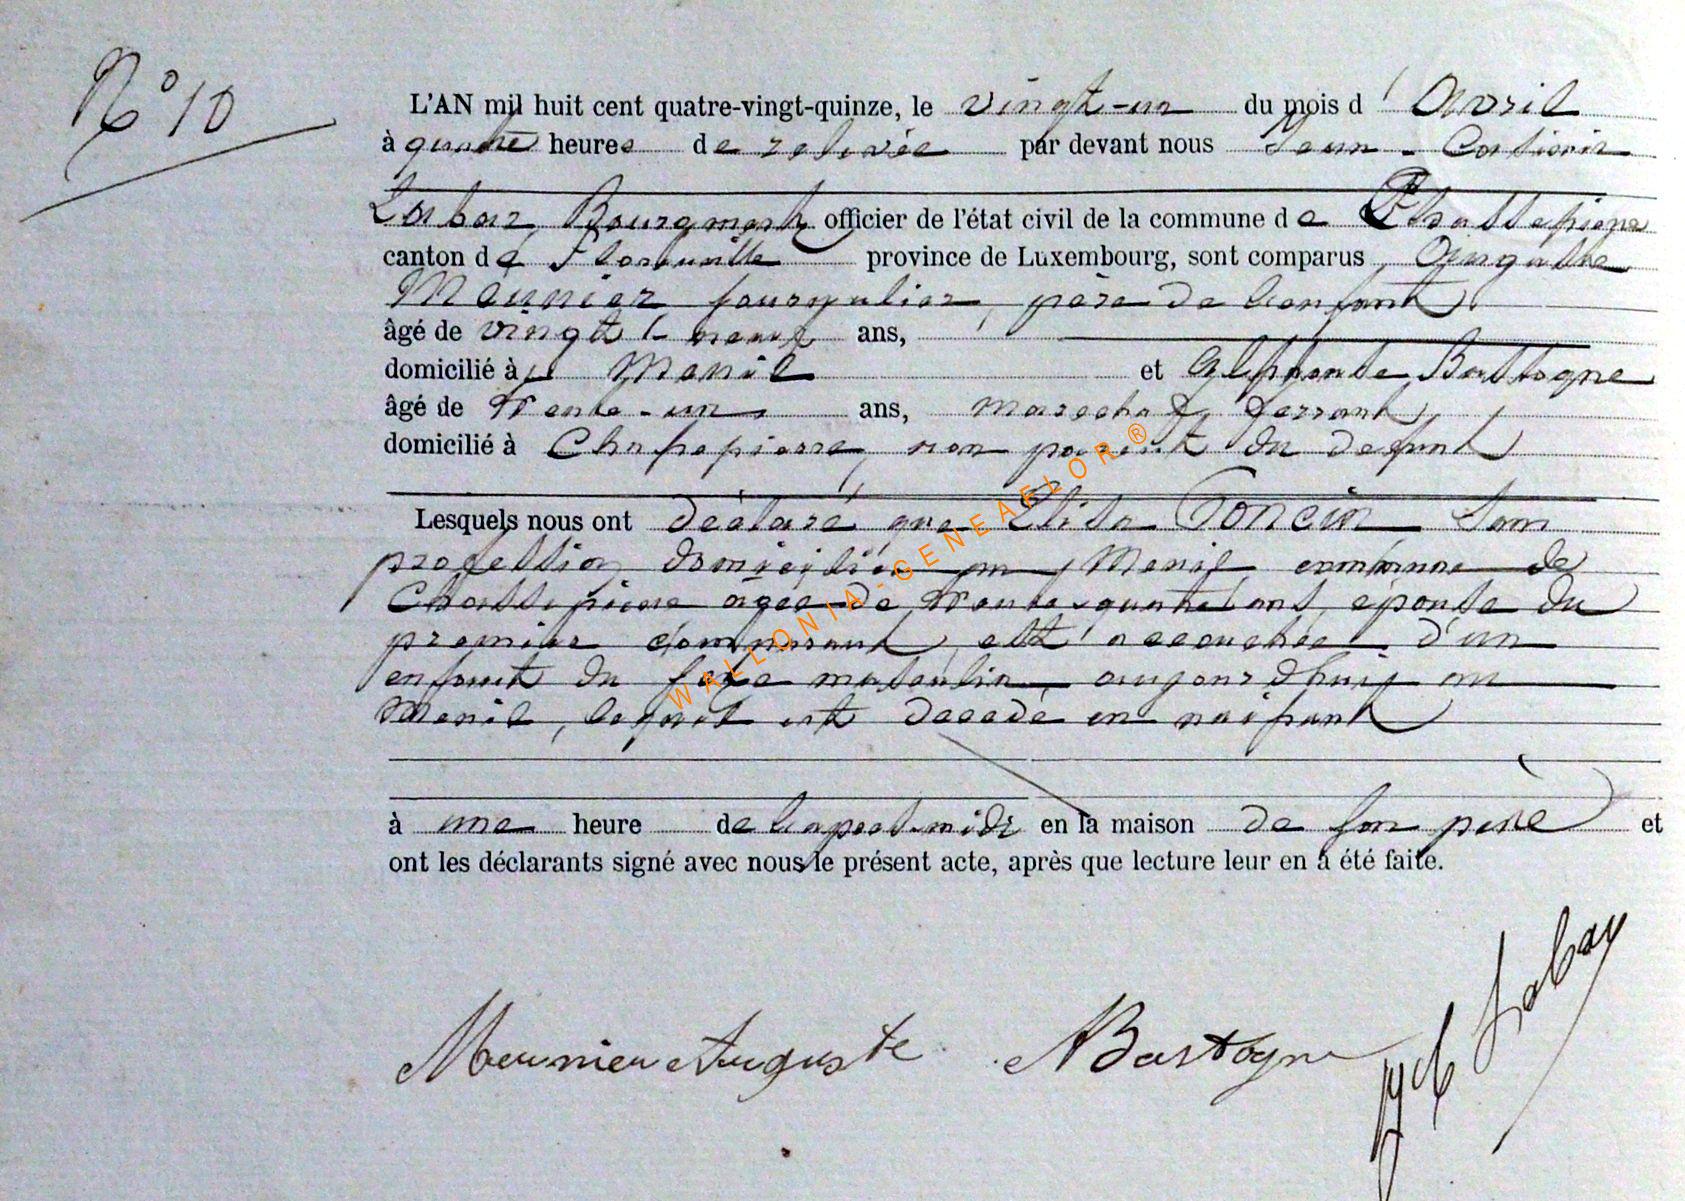 N° 10
L'AN mil huit cent quatre-vingt-quinze, le vingt-un du mois d' Avril
à quatre heures de relevée par devant nous Jean-Casimir
Labar, Bourgmestre officier de l'état civil de la commune de Chassepierre
canton de Florenville province de Luxembourg, sont comparus Auguste
Meunier journalier, père de l'enfant
âgé de vingt-neuf ans,
domicilié à Menil et Alphonse Bastogne
âgé de trente-un ans, marechal ferrant,
domicilié à Chassepierre, non parent du defunt
Lesquels nous ont déclaré que Elisa PONCIN sans
profession domiciliée au Menil commune de
Chassepierre agée de trente-quatre ans, épouse du
premier comparant, est accouchée d'un
enfant du sexe masculin aujourd'hui au
Menil, lequel est décedé en naissant
à une heure de l'apres-midi en la maison de son père et
ont les déclarants signé avec nous le présent acte, après que lecture leur en a été faite.
Meunier Auguste A Bastogne Labar
WALLONIA-GENEAFLOR®